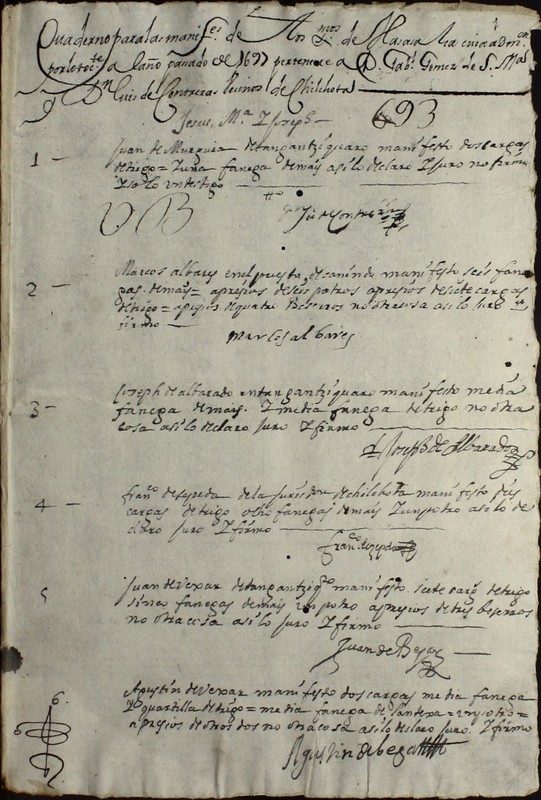 Quaderno para las manif.es de los
por lo toc.te a el año pasado de 1697 pertenece a D. Gab.l Gimez de
Dn Luis de Contreras Vecinos de Chilchota
Jesus, M.a Y Joseph
693
1 – Juan de Murguia de tangantziquaro manifesto dos cargas
de trigo = Y una fanega de mais asi lo declaro Y Juro no firmo
Y solo un testigo
tto
de Contreras
2 – Marcos albares en el puesto de canindo manifesto seis fane
gas de mais = apresios de seis potros apresios de siete cargas
de trigo = apresios de quatro Beserros no otra cosa asi lo juro
firmo
Marcos albares
3 – Joseph de albarado en tangantziquaro manifesto media
fanega de mais. Y media fanega de trigo no otra
cosa asi lo declaro juro Y firmo
Joseph de Albarado
4 – fran.co de sepeda de la Jurisdon de chilchota manifesto dies
cargas de trigo ocho fanegas de mais Y un potro asi lo de
claro juro Y firmo
Fran.co de zepeda
5 Juan de Vexar de tangantziq.ro manifesto siete carg.s de trigo
sinco fanegas de mais un potro apresios de tres beserros
no otra cosa asi lo juro Y firmo
Juan de Bejar
6 Agustin de Vexar manifesto dos cargas media fanega
Y quartilla de trigo = media fanega de lantexa = un potro =
apresios de otros dos no otra cosa asi lo declaro juro Y firmo
Agustin de bejar